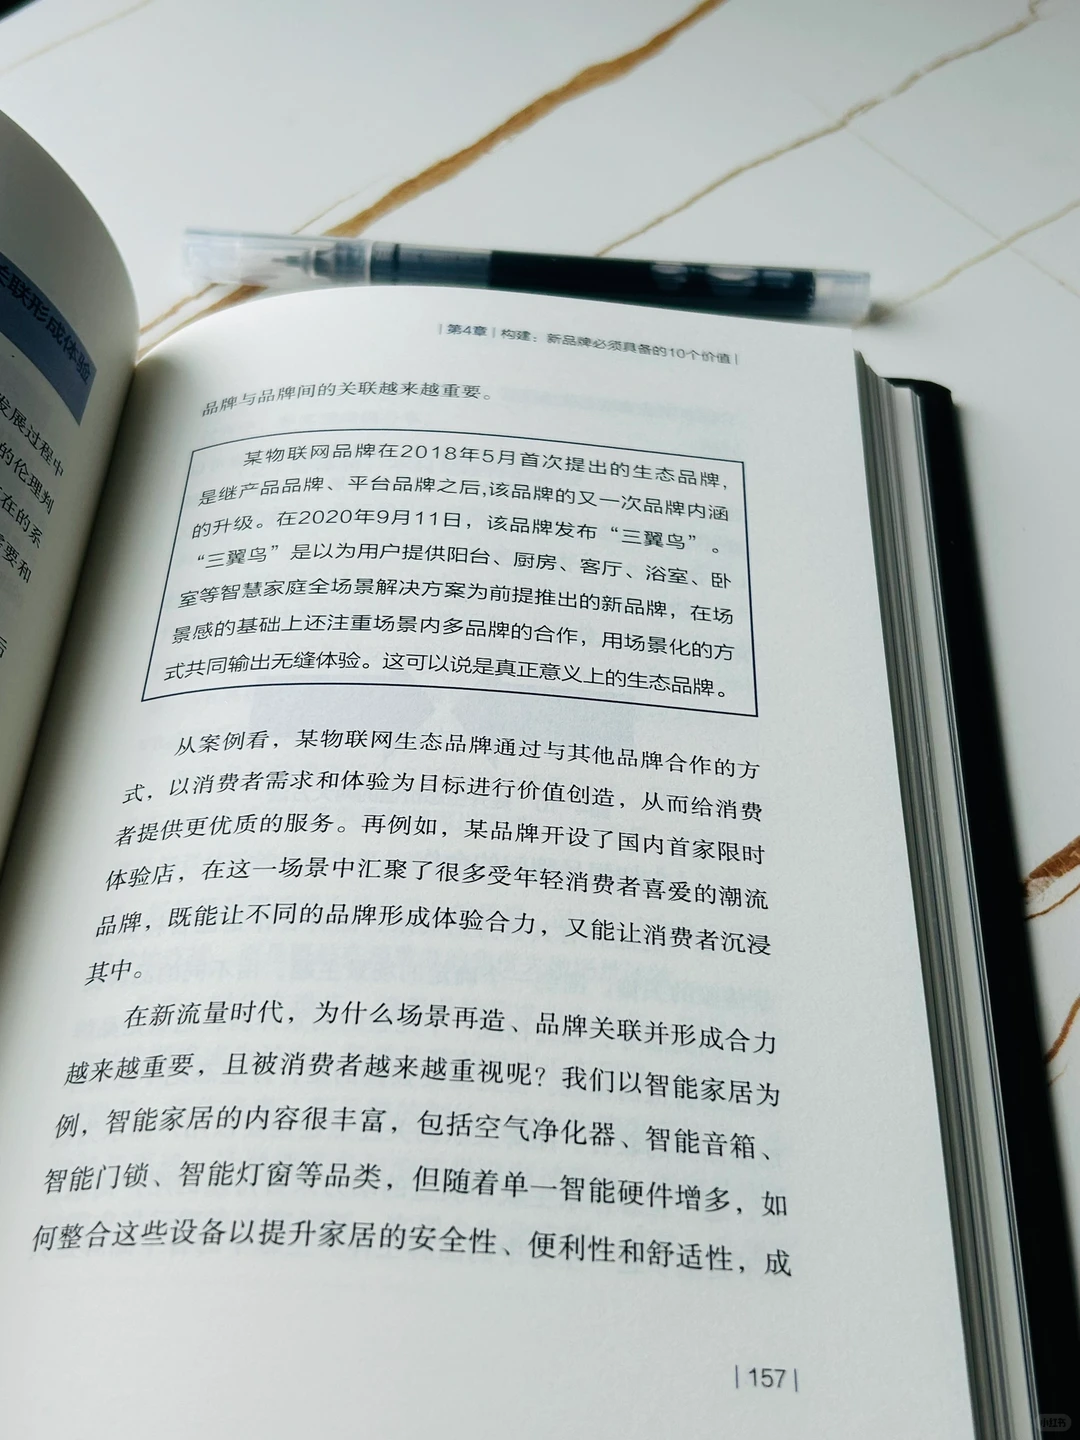 关联形成体验
发展过程中
的伦理判
在的系
需要和
后
|第4章|构建：新品牌必须具备的10个价值|
品牌与品牌间的关联越来越重要。
某物联网品牌在2018年5月首次提出的生态品牌，
是继产品品牌、平台品牌之后,该品牌的又一次品牌内涵
的升级。在2020年9月11日，该品牌发布“三翼鸟”。
“三翼鸟”是以为用户提供阳台、厨房、客厅、浴室、卧
室等智慧家庭全场景解决方案为前提推出的新品牌，在场
景感的基础上还注重场景内多品牌的合作，用场景化的方
式共同输出无缝体验。这可以说是真正意义上的生态品牌。
从案例看，某物联网生态品牌通过与其他品牌合作的方
式，以消费者需求和体验为目标进行价值创造，从而给消费
者提供更优质的服务。再例如，某品牌开设了国内首家限时
体验店，在这一场景中汇聚了很多受年轻消费者喜爱的潮流
品牌，既能让不同的品牌形成体验合力，又能让消费者沉浸
其中。
在新流量时代，为什么场景再造、品牌关联并形成合力
越来越重要，且被消费者越来越重视呢？我们以智能家居为
例，智能家居的内容很丰富，包括空气净化器、智能音箱、
智能门锁、智能灯窗等品类，但随着单一智能硬件增多，如
何整合这些设备以提升家居的安全性、便利性和舒适性，成
|157|
小红书